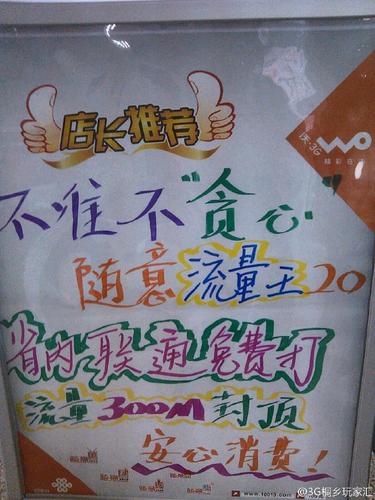 店长推荐
沃·3G
WO
精彩在沃
不准不"贪心"
随意流量王20
省内联通免费打
流量300M封顶
安心消费!
www.10010.com
@3G桐乡玩家汇